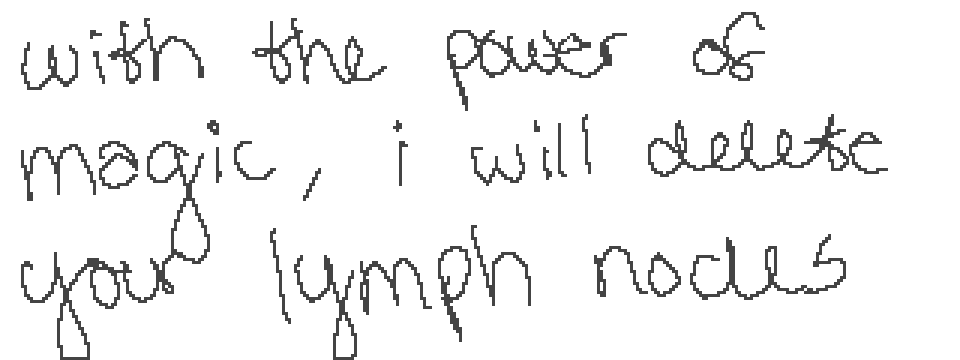 with the power of
magic, i will delete
your lymph nodes